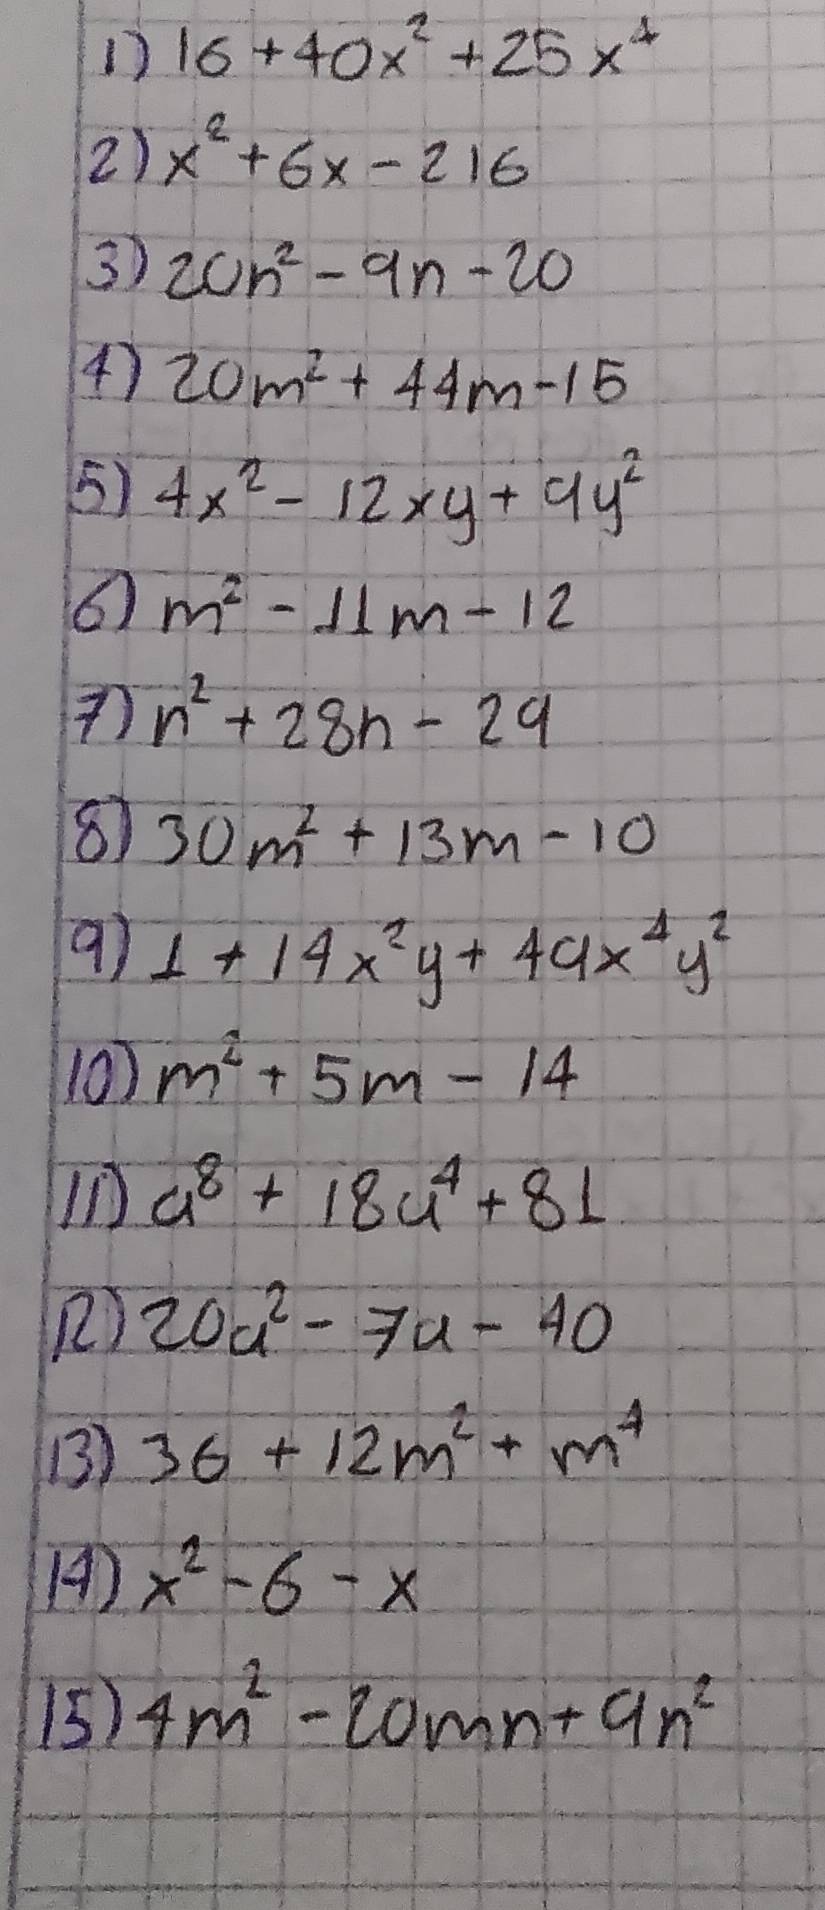 1) 16 + 40x² + 25x⁴
2) x² + 6x - 216
3) 20n² - 9n - 20
4) 20m² + 44m - 15
5) 4x² - 12xy + 9y²
6) m² - 11m - 12
7) n² + 28n - 29
8) 30m² + 13m - 10
9) 1 + 14x²y + 49x⁴y²
10) m² + 5m - 14
11) a⁸ + 18a⁴ + 81
12) 20a² - 7a - 40
13) 36 + 12m² + m⁴
14) x² - 6 - x
15) 4m² - 20mn + 9n²